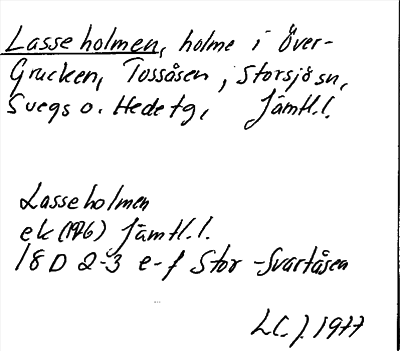 Lasseholmen, holme i Över-
Grucken, Tossåsen, Storsjö sn,
Svegs o. Hede tg, Jämtl.l.
Lasseholmen
ek (1976) Jämtl.l.
18 D 2-3 e-f Stor-Svartåsen
LC.J. 1977